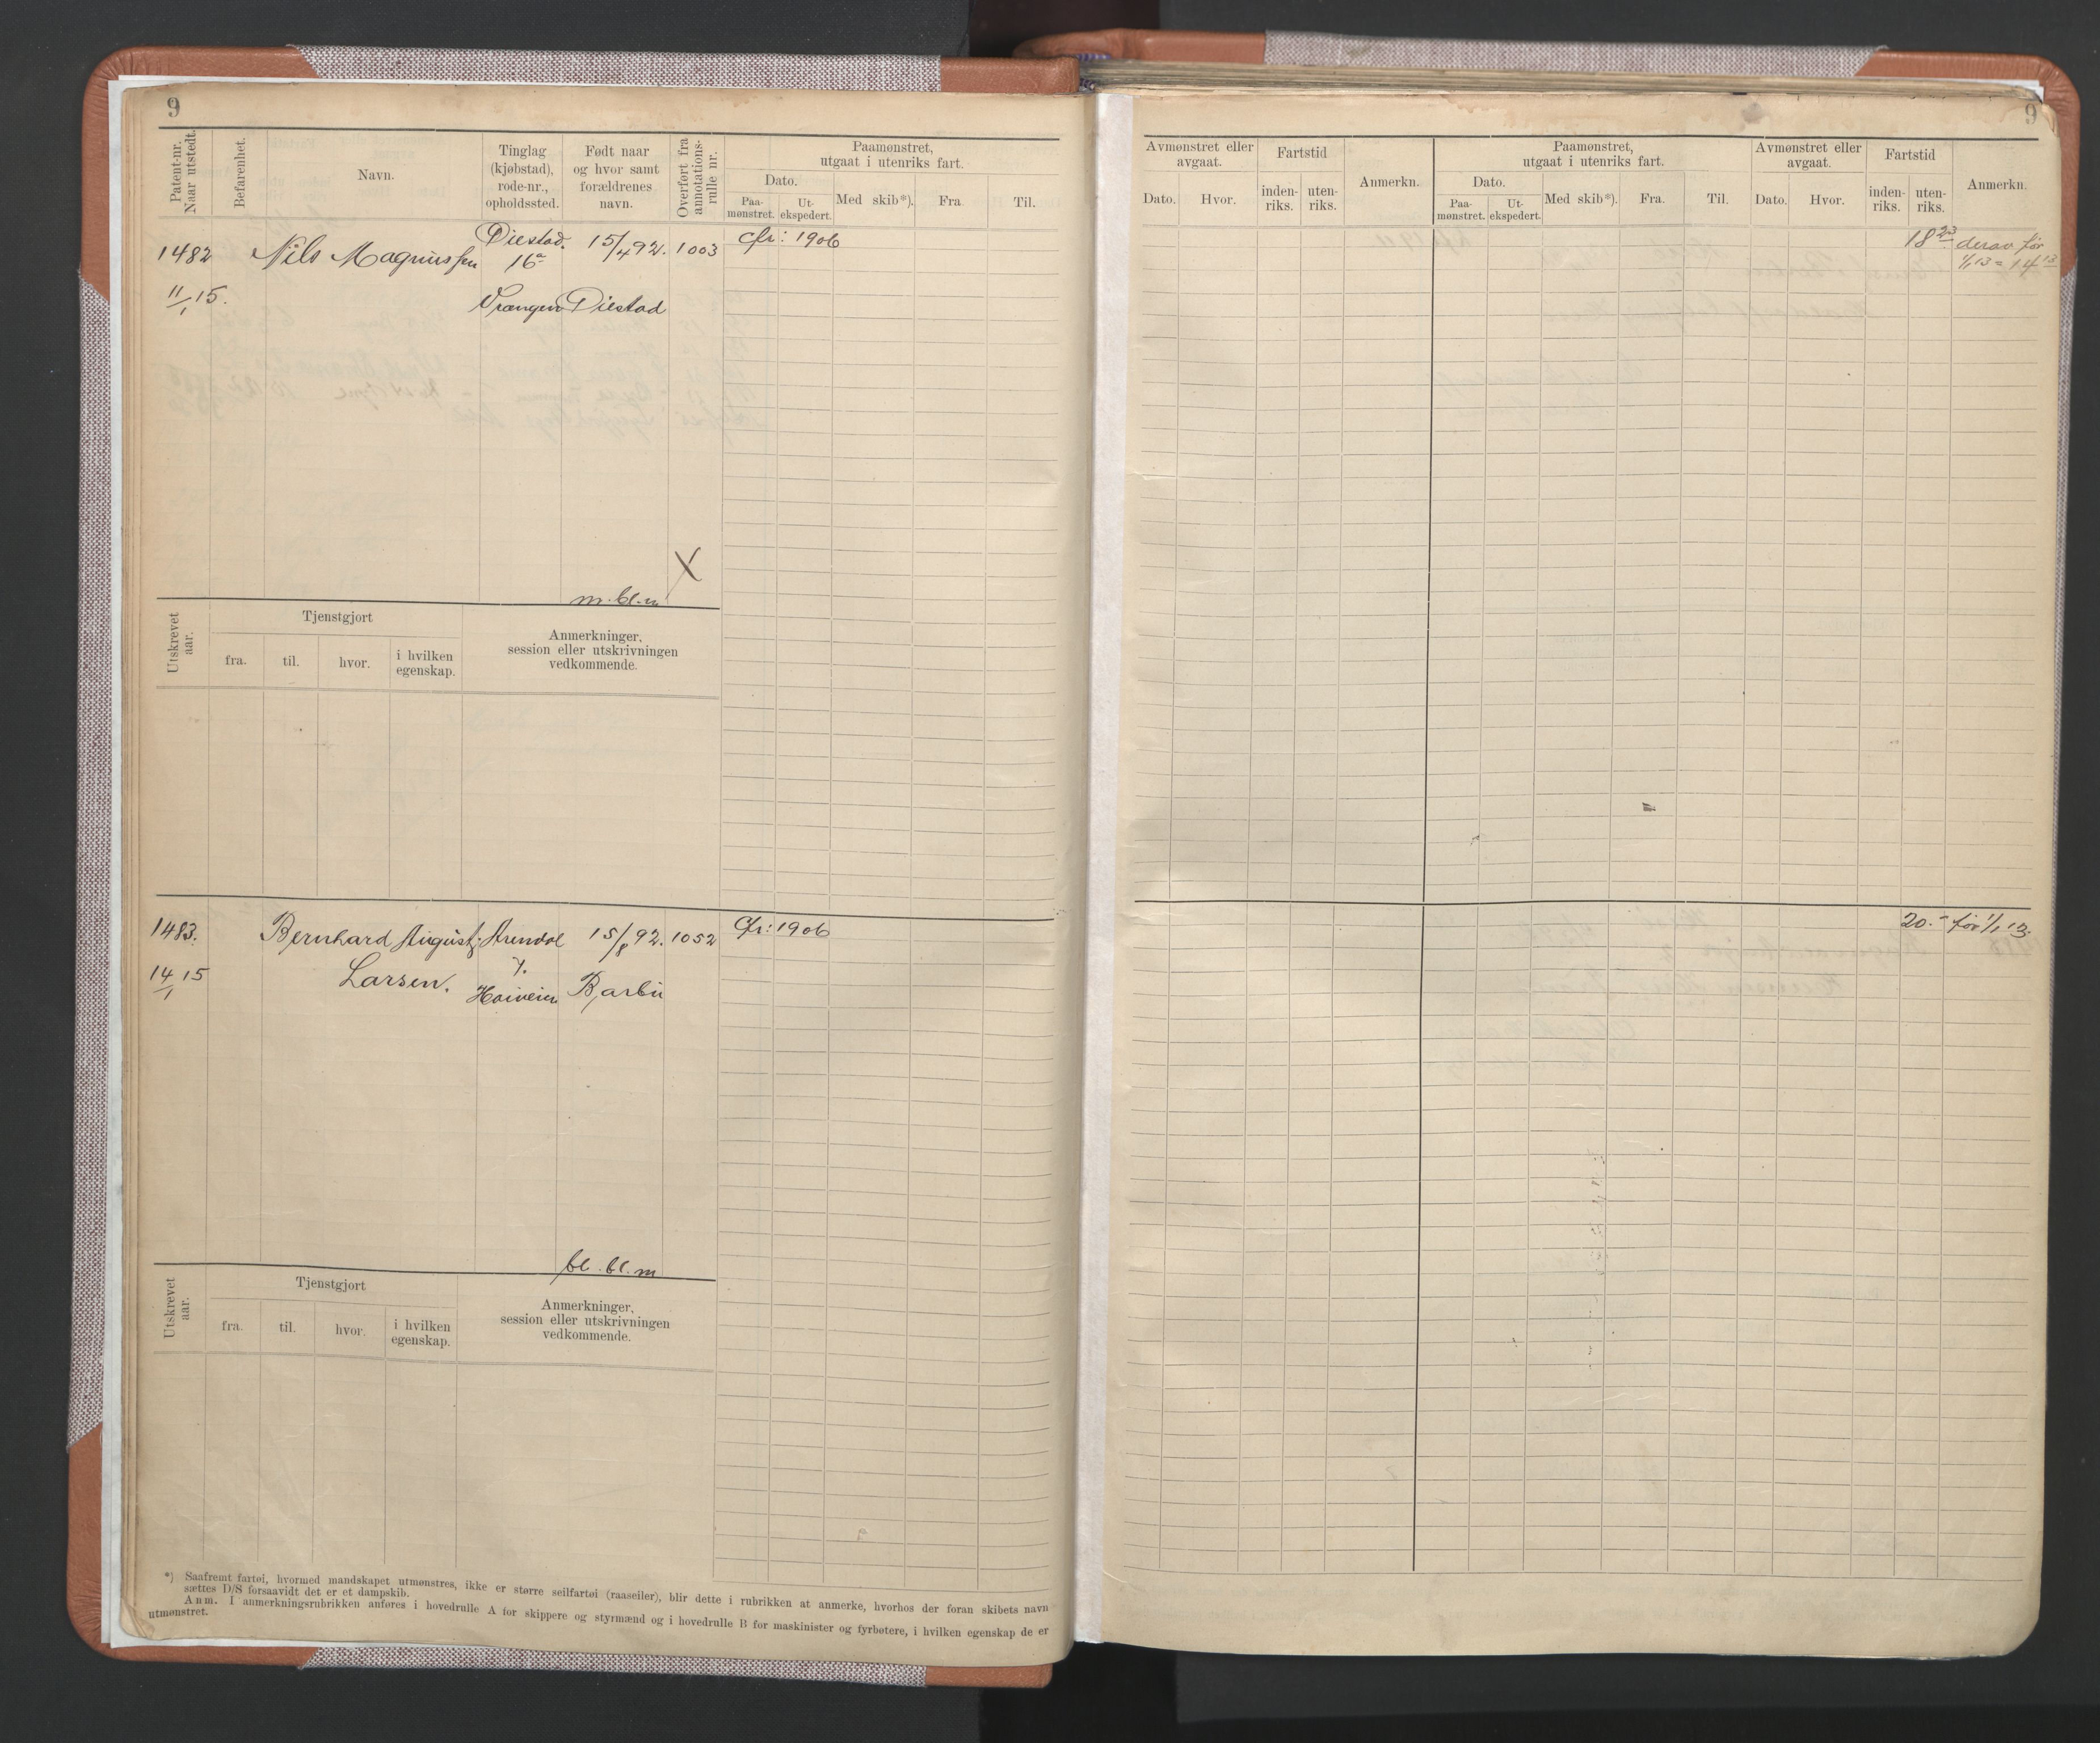 9
Patent-nr. Naar utstedt.
Befarenhet.
Navn.
Tinglag (kjøbstad), rode-nr., opholdssted.
Født naar og hvor samt forældrenes navn.
Overført fra annotations-rulle nr.
Paamønstret, utgaat i utenriks fart.
Dato.
Paa-mønstret.
Ut-ekspedert.
Med skib*).
Fra.
Til.
1482 Nils Magnussen Øiestad. 15/4 92. 1003 Cfr: 1906
16a
11/1 15. Vrangen Øiestad
X
m. bl. m
Utskrevet aar.
Tjenstgjort
fra.
til.
hvor.
i hvilken egenskap.
Anmerkninger, session eller utskrivningen vedkommende.
1483. Bernhard August Arendal 15/8 92. 1052 Cfr: 1906
7.
14/1 15 Larsen. Barbu
bl. bl. m
Utskrevet aar.
Tjenstgjort
fra.
til.
hvor.
i hvilken egenskap.
Anmerkninger, session eller utskrivningen vedkommende.
*) Saafremt fartøi, hvormed mandskapet utmønstres, ikke er større seilfartøi (raaseiler), blir dette i rubrikken at anmerke, hvorhos der foran skibets navn
sættes D/S forsaavidt det er et dampskib.
Anm. I anmerkningsrubrikken anføres i hovedrulle A for skippere og styrmænd og i hovedrulle B for maskinister og fyrbøtere, i hvilken egenskap de er
utmønstret.
9
Avmønstret eller avgaat.
Dato.
Hvor.
Fartstid
inden-riks.
uten-riks.
Anmerkn.
Paamønstret, utgaat i utenriks fart.
Dato.
Paa-mønstret.
Ut-ekspedert.
Med skib*).
Fra.
Til.
Avmønstret eller avgaat.
Dato.
Hvor.
Fartstid
inden-riks.
uten-riks.
Anmerkn.
18 23 derav før
1/1 13 = 14 13
20.- før 1/1 13.